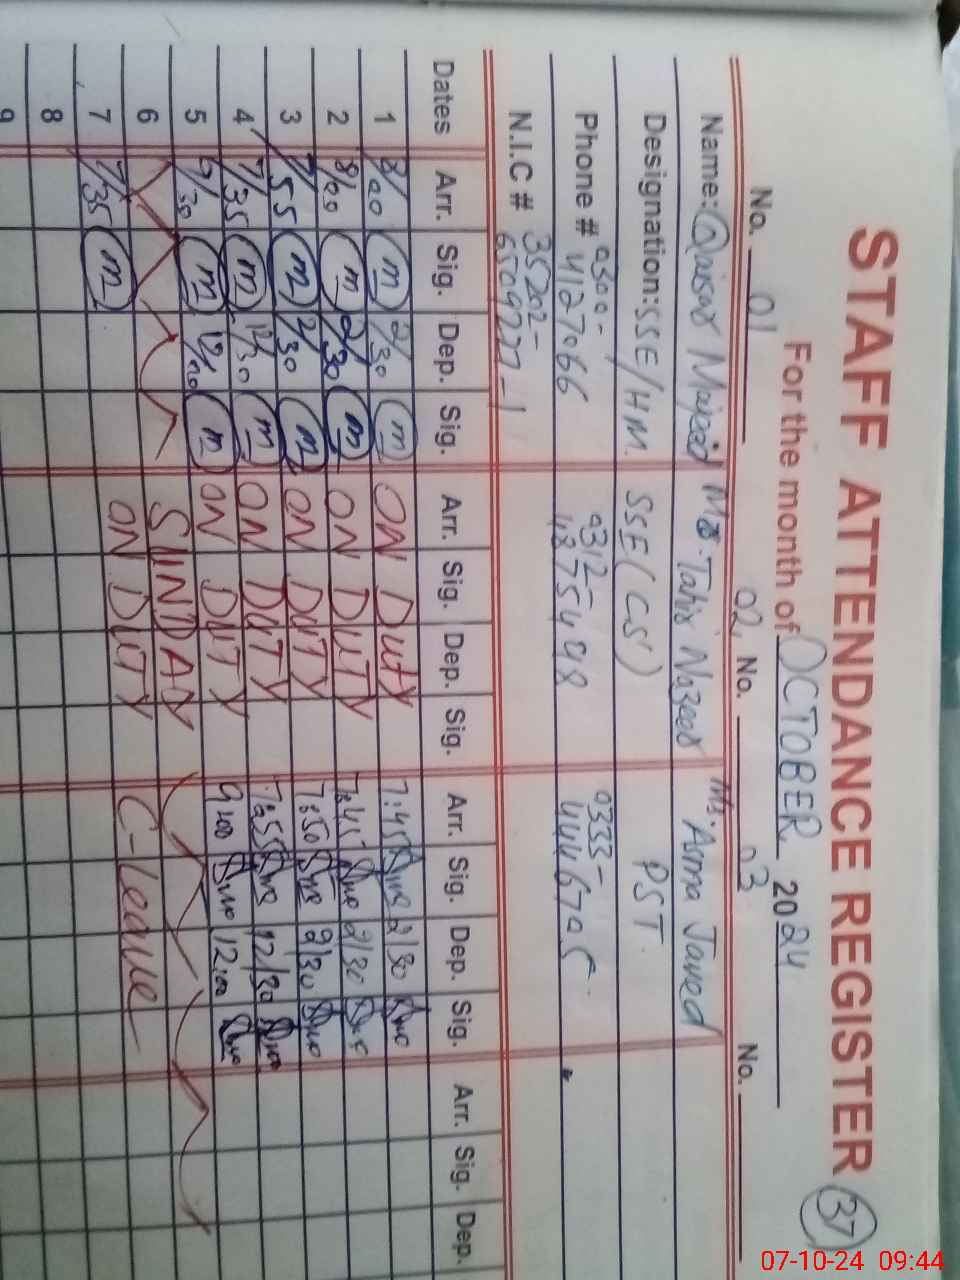 STAFF ATTENDANCE REGISTER 37
For the month of OCTOBER 2024
No. 01 02. No. 03 No.
Name: Qaisar Majeed Mr. Tahir Nazeer Ms. Asma Javed
Designation: SSE/HM. SSE (CS) PST.
Phone # 0300- 4127066 0312- 4875498 0333- 4446705
N.I.C # 35202- 6509277-1
Dates Arr. Sig. Dep. Sig. Arr. Sig. Dep. Sig. Arr. Sig. Dep. Sig. Arr. Sig. Dep.
1 8/00 m 2/30 m ON DUTY 7:45 2/30
2 8/00 m 2/30 m ON DUTY 7:45 2/30
3 7/55 m 2/30 m ON DUTY 7:50 2/30
4 7/35 m 12/30 m ON DUTY 7:55 12/30
5 m 12/00 m ON DUTY 9:00 12:00
6 SUNDAY
7 7/35 m ON DUTY C-leave
8
9
07-10-24 09:44